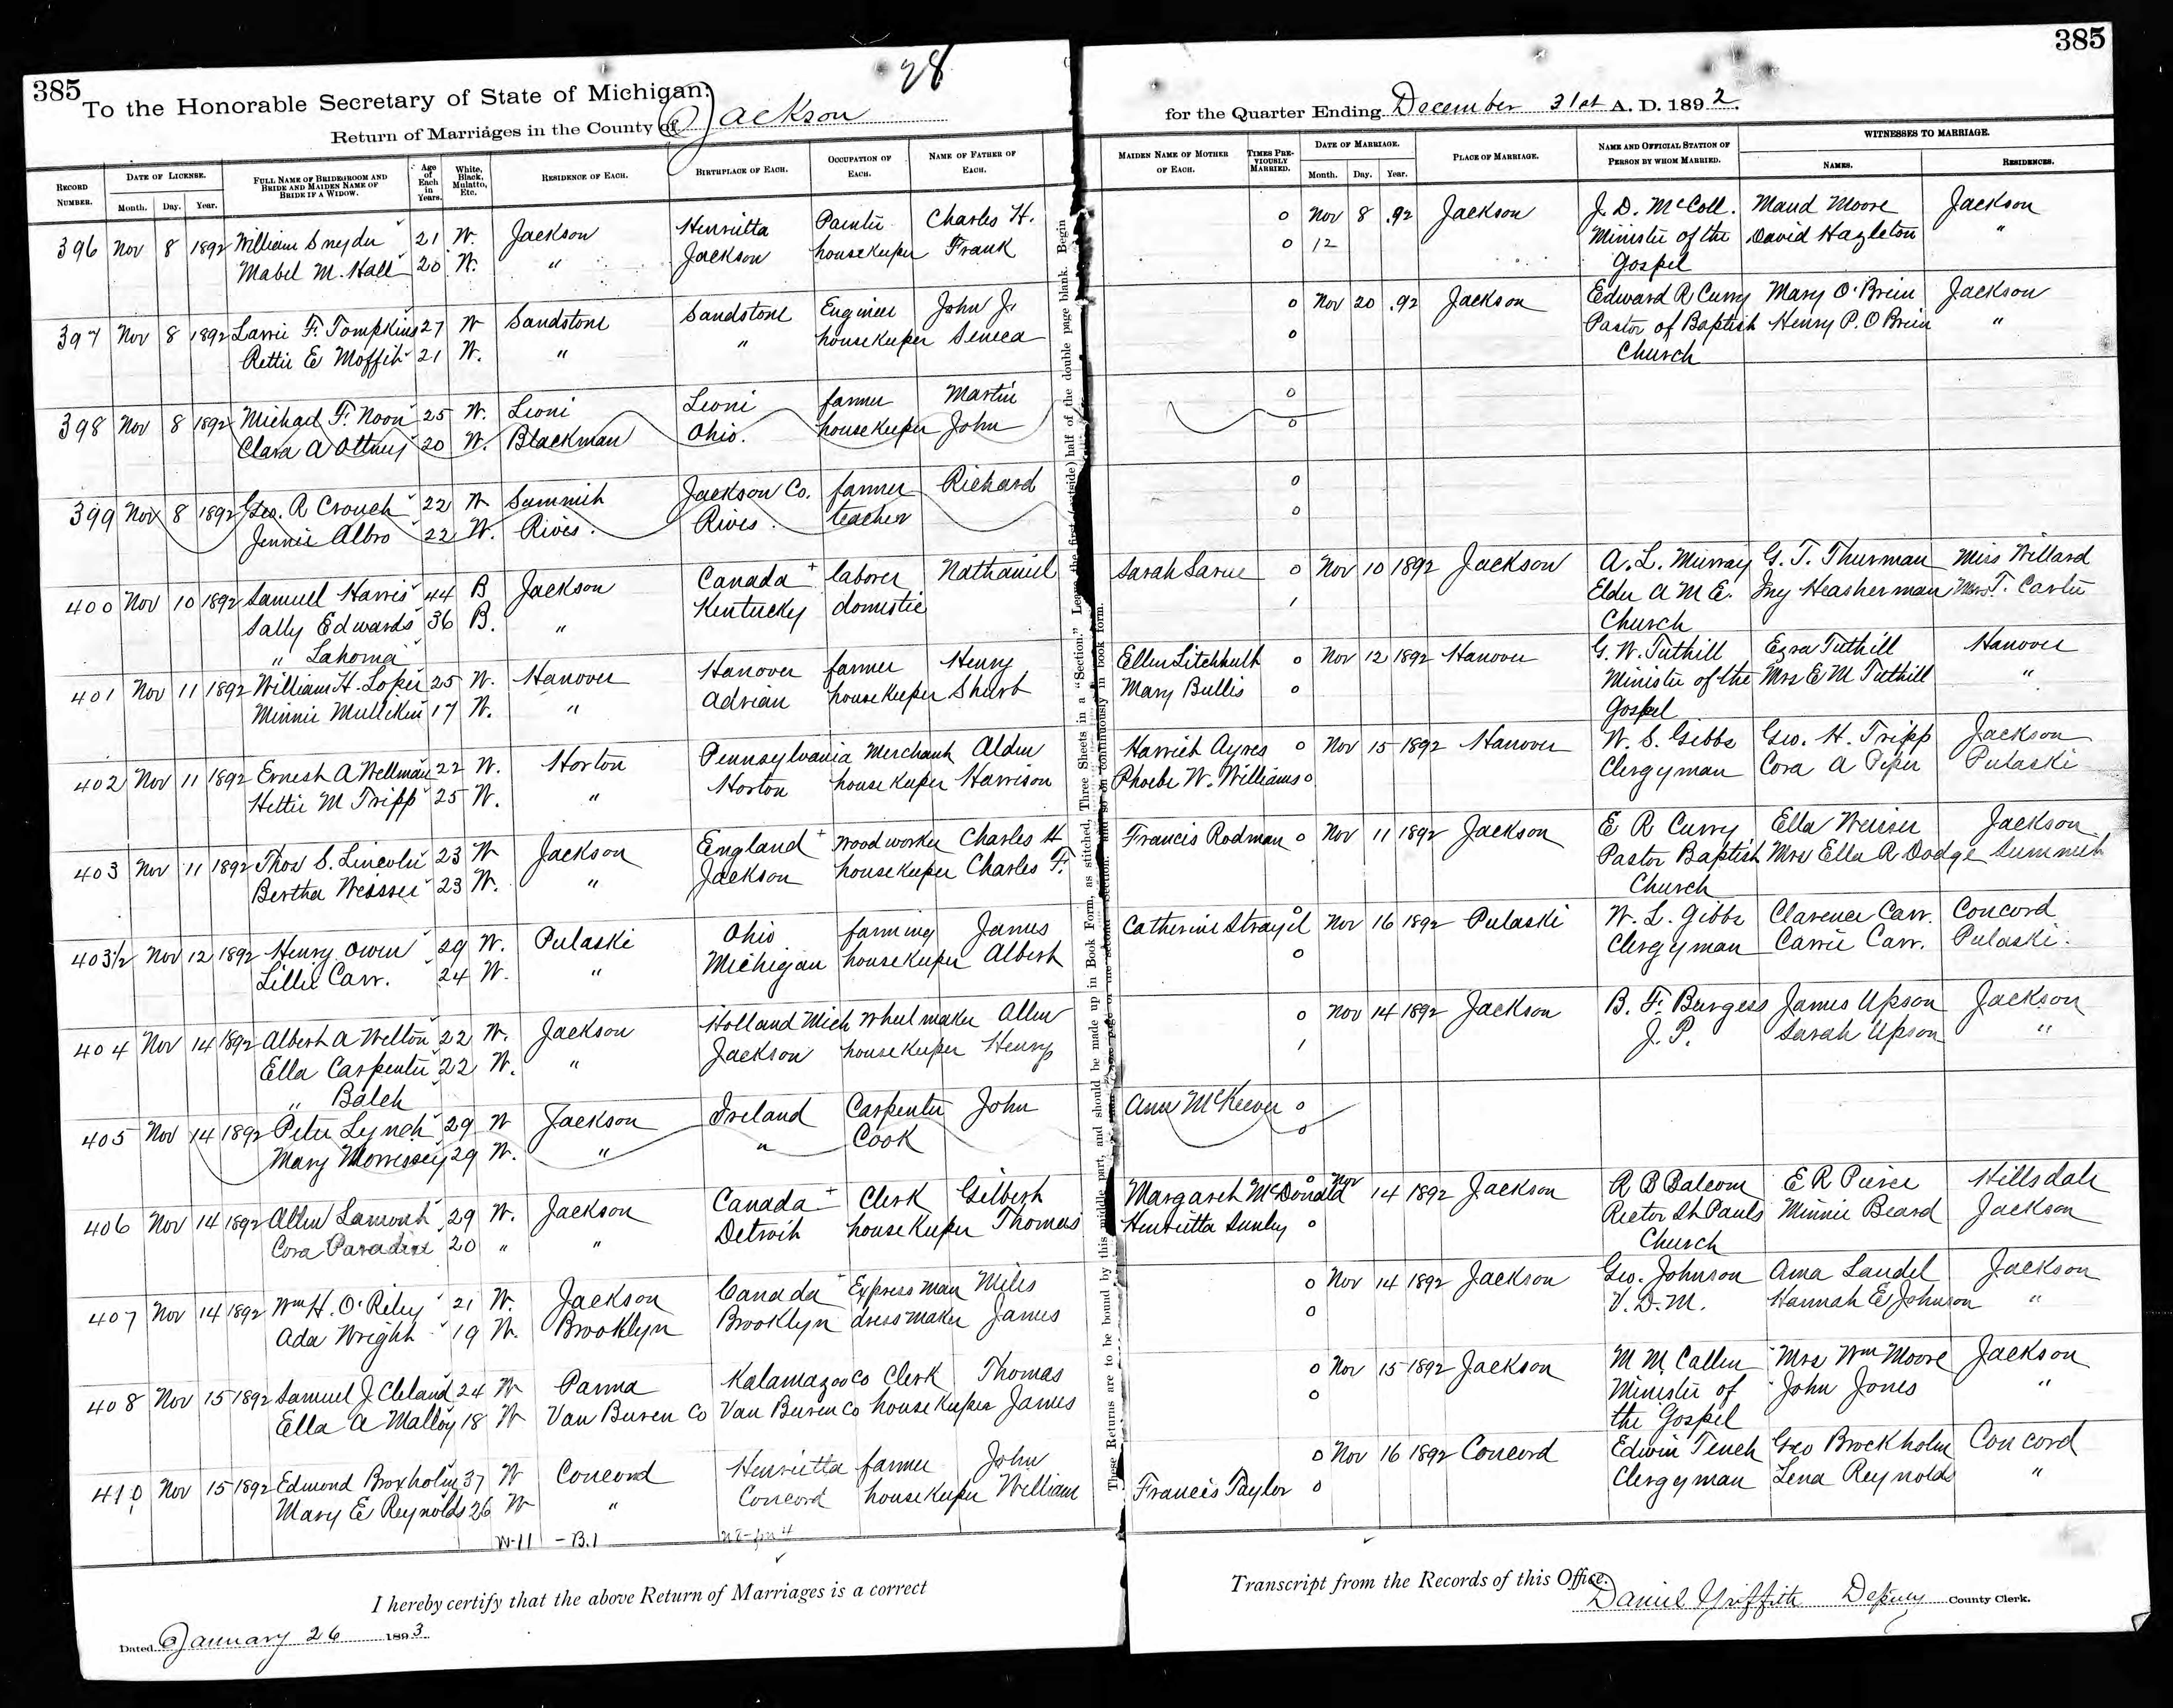 385
28
385
To the Honorable Secretary of State of Michigan:
Return of Marriages in the County of Jackson
for the Quarter Ending December 31st A. D. 1892.
RECORD NUMBER. DATE OF LICENSE. Month. Day. Year. FULL NAME OF BRIDEGROOM AND BRIDE AND MAIDEN NAME OF BRIDE IF A WIDOW. Age of Each in Years. White, Black, Mulatto, Etc. RESIDENCE OF EACH. BIRTHPLACE OF EACH. OCCUPATION OF EACH. NAME OF FATHER OF EACH. MAIDEN NAME OF MOTHER OF EACH. TIMES PREVIOUSLY MARRIED. DATE OF MARRIAGE. Month. Day. Year. PLACE OF MARRIAGE. NAME AND OFFICIAL STATION OF PERSON BY WHOM MARRIED. WITNESSES TO MARRIAGE. NAMES. RESIDENCES.
396 Nov 8 1892 William Snyder 21 W. Jackson Henrietta Painter Charles H. 0 Nov 8 .92 Jackson J. D. McColl. Maud Moore Jackson
Mabel M. Hall 20 W. " Jackson housekeeper Frank 0 12 Minister of the David Hazleton "
Gospel
397 Nov 8 1892 Larrie F. Tompkins 27 W Sandstone Sandstone Engineer John J. 0 Nov 20 .92 Jackson Edward R Curry Mary O'Brien Jackson
Rettie E Moffit 21 W. " " housekeeper Seneca 0 Pastor of Baptist Henry P. O Brien "
Church
398 Nov 8 1892 Michael F. Noon 25 W. Leoni Leoni farmer Martin 0
Clara A Ottney 20 W. Blackman Ohio. housekeeper John 0
399 Nov 8 1892 Geo. R Crouch 22 W Summit Jackson Co. farmer Richard 0
Jennie Albro 22 W. Rives. Rives. teacher 0
400 Nov 10 1892 Samuel Harris 44 B Jackson Canada + laborer Nathaniel Sarah Sarue 0 Nov 10 1892 Jackson A. L. Murray G. T. Thurman Miss Willard
Sally Edwards 36 B. " Kentucky domestic 1 Elder A M E. Jny Heasherman Mrs T. Carter
" Lahoma Church
401 Nov 11 1892 William H. Loper 25 W. Hanover Hanover farmer Henry Ellen Litchhult 0 Nov 12 1892 Hanover G. W. Tuthill Ezra Tuthill Hanover
Minnie Mulliken 17 W. " Adrian housekeeper Shurb Mary Bullis 0 Minister of the Mrs E M Tuthill "
Gospel
402 Nov 11 1892 Ernest A Wellman 22 W. Horton Pennsylvania Merchant Alden Harriet Ayres 0 Nov 15 1892 Hanover W. S. Gibbs Geo. H. Tripp Jackson
Hettie M Tripp 25 W. " Horton housekeeper Harrison Phoebe W. Williams 0 Clergyman Cora A Piper Pulaski
403 Nov 11 1892 Thos S. Lincoln 23 W Jackson England + Woodworker Charles H Francis Rodman 0 Nov 11 1892 Jackson E R Curry Ella Weiser Jackson
Bertha Wesser 23 W. " Jackson housekeeper Charles F. Pastor Baptist Mrs Ella R Dodge Summit
Church
403½ Nov 12 1892 Henry Owen 29 W. Pulaski Ohio farming James Catherine Strayel 0 Nov 16 1892 Pulaski W. L. Gibbs Clarence Carr. Concord
Lillie Carr. 24 W. " Michigan housekeeper Albert 0 Clergyman Carrie Carr. Pulaski.
404 Nov 14 1892 Albert A Welton 22 W. Jackson Holland Mich Wheelmaker Allen 0 Nov 14 1892 Jackson B. F. Burgess James Upson Jackson
Ella Carpenter 22 W. " Jackson housekeeper Henry 1 J. P. Sarah Upson "
" Balch
405 Nov 14 1892 Peter Lynch 29 W Jackson Ireland Carpenter John Ann McKeever 0
Mary Morrissey 29 W. " " Cook 0
406 Nov 14 1892 Allen Lamont 29 W. Jackson Canada + Clerk Gilbert Margaret McDonald 0 Nov 14 1892 Jackson R B Balcom E R Pierce Hillsdale
Cora Paradine 20 " " Detroit housekeeper Thomas Henrietta Sunley 0 Rector St Pauls Minnie Beard Jackson
Church
407 Nov 14 1892 Wm H. O'Riley 21 W. Jackson Canada Express man Miles 0 Nov 14 1892 Jackson Geo. Johnson Ama Laudel Jackson
Ada Wright 19 W. Brooklyn Brooklyn dressmaker James 0 V. D. M. Hannah E Johnson "
408 Nov 15 1892 Samuel J. Cleland 24 W Parma Kalamazoo Co Clerk Thomas 0 Nov 15 1892 Jackson M M Callen Mrs Wm Moore Jackson
Ella A Malloy 18 W Van Buren Co Van Buren Co housekeeper James 0 Minister of John Jones "
the Gospel
410 Nov 15 1892 Edmond Broxholm 37 W Concord Henrietta farmer John 0 Nov 16 1892 Concord Edwin Tench Geo Brockholm Concord
Mary E Reynolds 26 W " Concord housekeeper William Francis Taylor 0 Clergyman Lena Reynolds "
W-11 - B.1
These Returns are to be bound by this middle part, and should be made up in Book Form, as stitched, Three Sheets in a "Section." Leave the first (outside) half of the double page blank. Begin
I hereby certify that the above Return of Marriages is a correct
Transcript from the Records of this Office.
Daniel Griffith Deputy County Clerk.
Dated January 26 1893